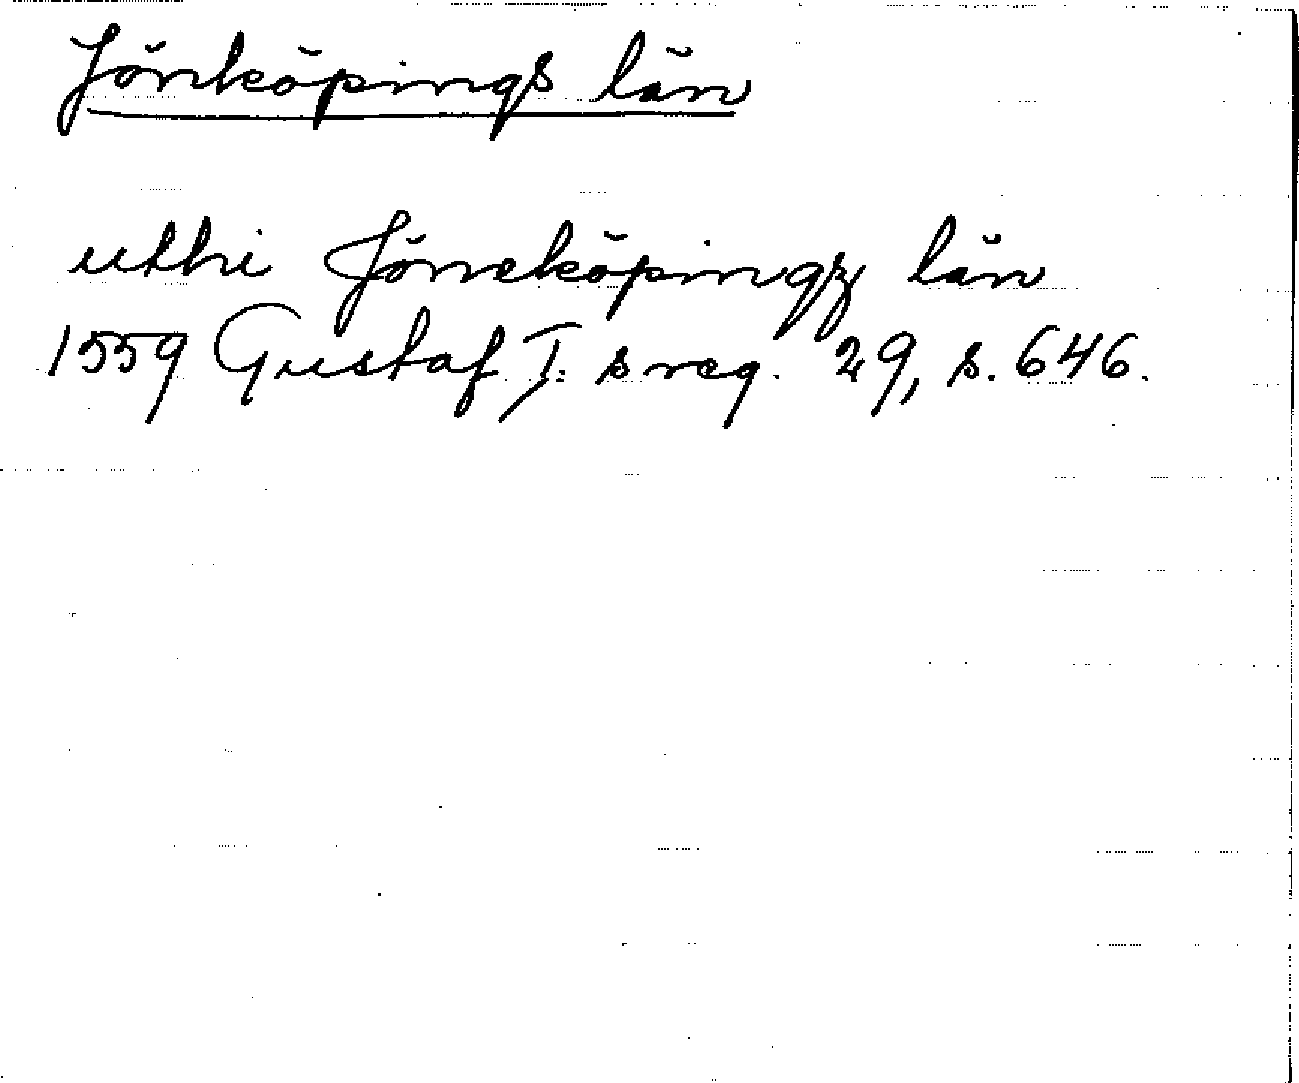 Jönköpings län
uthi Jöneköpingz län
1559 Gustaf I:s reg. 29, s. 646.